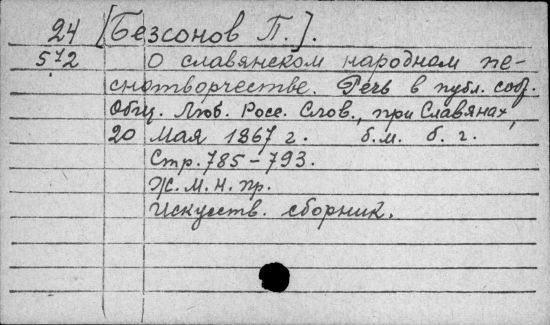 24 [Безсонов П.].
572 О славянском народном пе-
снотворчестве. Речь в публ. собр.
Общ. Люб. Росс. Слов., при Славянах,
20 Мая 1867 г. б.м. б.г.
Стр. 785-793.
Ж.М.Н.пр.
Искусств. сборник.